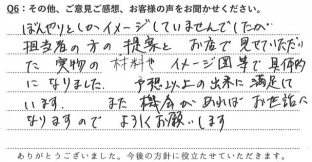 Q6：その他、ご意見ご感想、お客様の声をお聞かせください。
ぼんやりとしかイメージしていませんでしたが
担当者の方の提案と お店で見せていただい
た 実物の 材料や イメージ図等で具体的
になりました。 予想以上の出来に満足して
います。 また 機会があればお世話に
なりますので よろしくお願いします
ありがとうございました。今後の方針に役立たせていただきます。